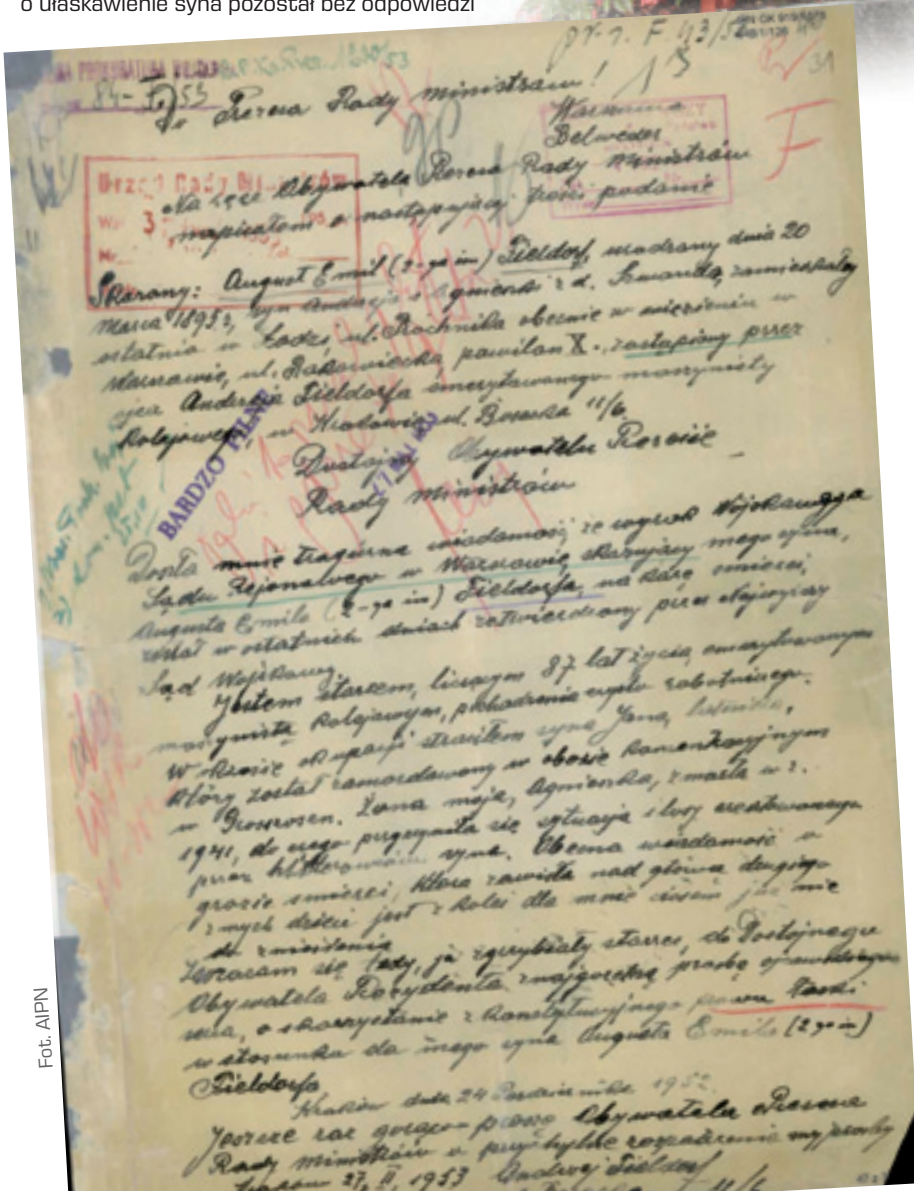 o ułaskawienie syna pozostał bez odpowiedzi
84-
53
Rady Ministrów!
Warszawa
Belweder
Urząd Rady Ministrów
Na ręce Obywatela Prezesa Rady Ministrów
napisałem o następującej treści podanie
F
Skazany: August Emil (2-ga im) Fieldorf, urodzony dnia 20
marca 1895 r, syn Andrzeja i Agnieszki z d. Szwanda, zamieszkały
ostatnio w Łodzi, ul. Próchnika obecnie w więzieniu w
Warszawie, ul. Rakowiecka pawilon X., zastąpiony przez
ojca Andrzeja Fieldorfa emerytowanego maszynisty
kolejowego w Krakowie ul. 11/6
BARDZO PILNE
Dostojny Obywatelu Prezesie
Rady Ministrów
Doszła mnie tragiczna wiadomość, że wyrok Wojskowego
Sądu Rejonowego w Warszawie skazujący mego syna,
Augusta Emila (2-ga im) Fieldorfa, na karę śmierci,
został w ostatnich dniach zatwierdzony przez Najwyższy
Sąd Wojskowy.
Jestem starcem, liczącym 87 lat życia, emerytowanym
maszynistą kolejowym, pochodzenia czysto robotniczego.
W okresie okupacji straciłem syna Jana,
który został zamordowany w obozie koncentracyjnym
w Grossrosen. Żona moja, Agnieszka, zmarła w r.
1941, do czego przyczyniła się sytuacja i losy aresztowanego
przez hitlerowców syna. Obecna wiadomość o
grozie śmierci, która zawisła nad głową drugiego
z mych dzieci jest z kolei dla mnie ciosem już nie
do zniesienia
Zwracam się tedy, ja zgrzybiały starzec, do Dostojnego
Obywatela Prezydenta z najgorętszą prośbą
o skorzystanie z konstytucyjnego prawa łaski
w stosunku do mego syna Augusta Emila (2 ga im)
Fieldorfa
Kraków dnia 24 Października 1952.
Jeszcze raz gorąco proszę Obywatela Prezesa
Rady Ministrów o przychylne rozpatrzenie mej prośby
Kraków 27, II, 1953 Andrzej Fieldorf
11/6
Fot. AIPN